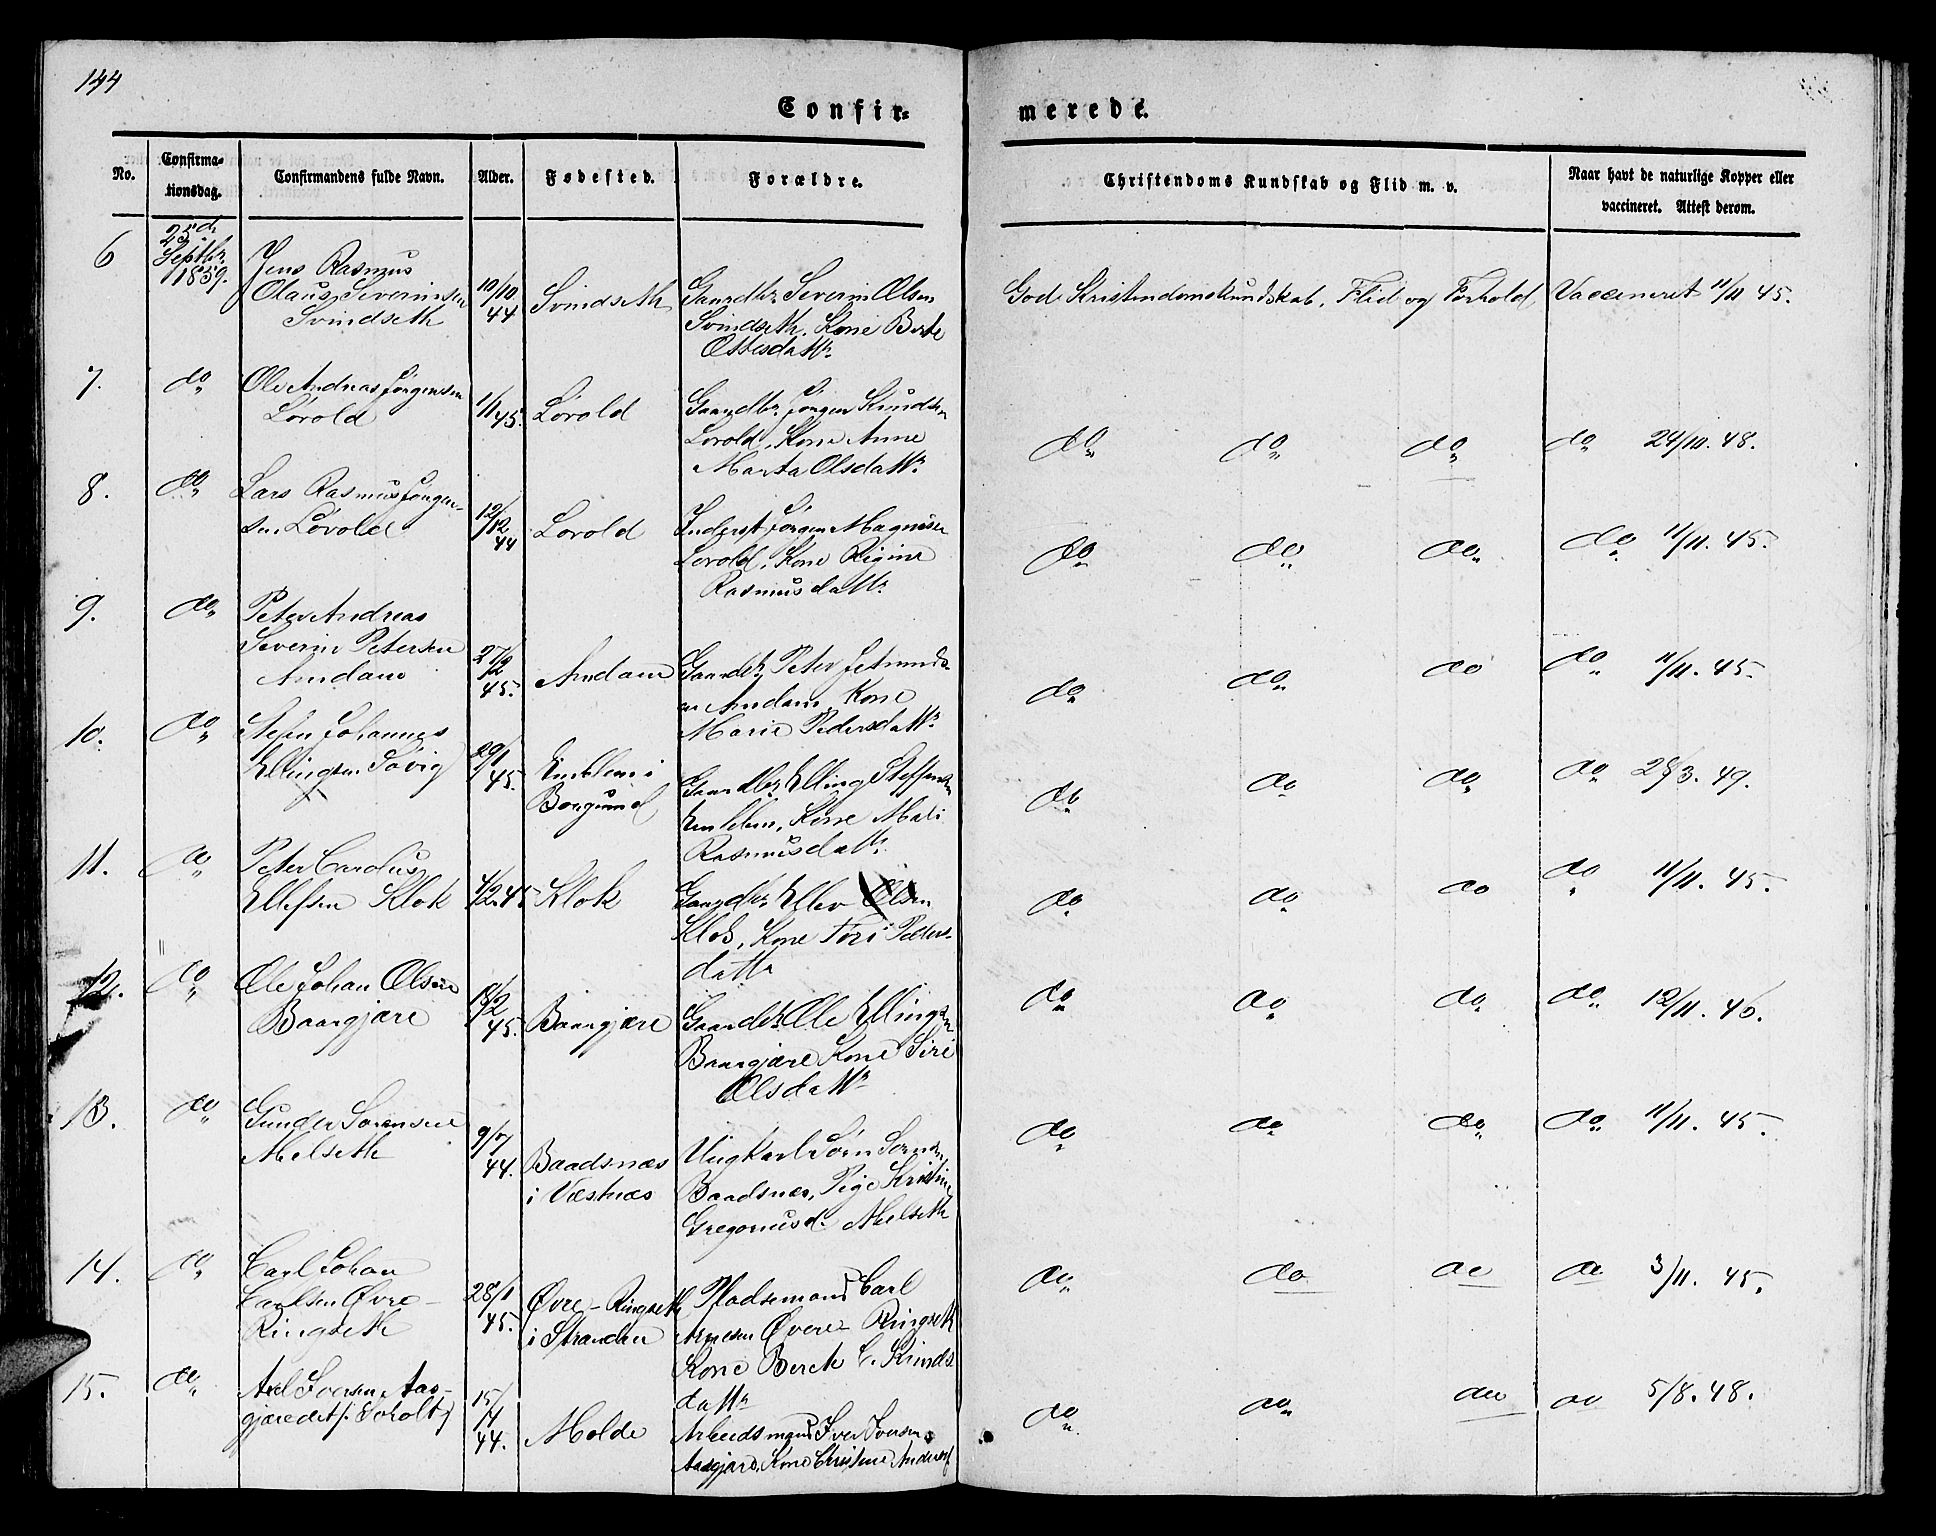 144
Confir-
merede.
No.
Confirma-
tionsdag.
Confirmandens fulde Navn.
Alder.
Fødested.
Forældre.
Christendoms Kundskab og Flid m. v.
Naar havt de naturlige Kopper eller
vaccineret. Attest derom.
6
25de
Septbr.
1859.
Jens Rasmus
Olaus Severinsen
Svindseth
10/10
44
Svindseth
Gaardbr. Severin Olsen
Svindseth, Kone Berte
Ottesdattr.
God Kristendomskundskab, Flid og Forhold
Vaccineret 11/11 45.
7.
do
Ole Andreas Jörgensen
Lövold
1/1
45.
Lövold
Gaardbr. Jörgen Knudsen
Lovold, Kone Anne
Marta Olsdattr.
do do do
do 24/10. 48.
8.
do
Lars Rasmus Jörgen-
sen Lövold
12/12
44
Lovold
Inderst Jörgen Magnusen
Lovold, Kone Rigine
Rasmusdattr.
do do do
do 11/11. 45.
9.
do
Peter Andreas
Severin Petersen
Amdam
27/2
45.
Amdam
Gaardbr. Peter
Amdam, Kone
Marie Pedersdattr.
do do do
do 11/11. 45.
10.
do
Stefen Johannes
Ellingsen Sövig
29/1
45.
Emblem i
Borgund
Gaardbr. Elling Steffensen
Emblem, Kone Mali
Rasmusdattr.
do do do
do 28/3. 49.
11.
do
Peter Cardus
Ellefsen Klok
4/2. 45
Klok
Gaardbr. Ellev Olsen
Klok, Kone Tori Peders-
dattr
do do do
do 11/11. 45.
12.
do
Ole Johan Olsen
Baargjære
18/2
45.
Baargjære
Gaardbr. Ole Ellingsen
Baargjære Kone Siri
Olsdattr
do do do
do 12/11. 46.
13.
do
Gunder Sorensen
Melseth
9/7
44.
Baadsnæs
i Væstnæs
Ungkarl Sörn Sornsen
Baadsnæs, Pige Kristine
Gregoriusd. Melseth
do do do
do 11/11. 45.
14.
do
Carl Johan
Carlsen Øvre-
Ringseth
28/1
45.
Øvre-Ringseth
i Stranden
Pladsemand Carl
Arnesen Øvere Ringseth
Kone Bereth C. Knuds
dattr
do do do
do 3/11. 45.
15.
do
Axel Iversen Aas-
15/
11
44.
Molde
Arbeidsmand Iver Iversen
Aasgjære, Kone Christine Andersd
do do do
do 5/8. 48.